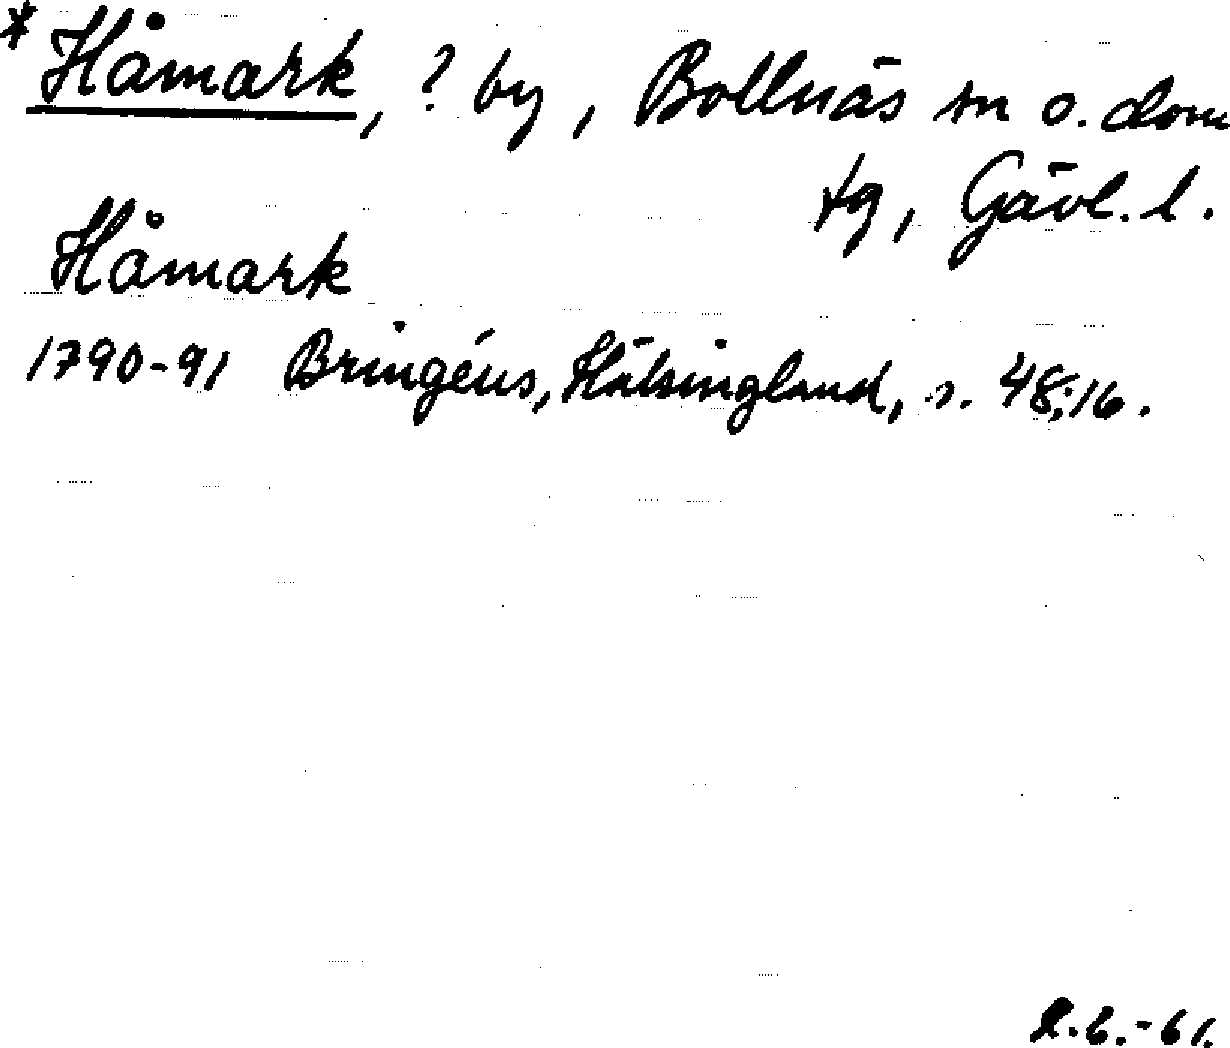 * Håmark, ? by, Bollnäs sn o. dom
tg, Gävl. l.
Håmark
1790-91 Bringéus, Hälsingland, s. 48;16.
2.6.-61.